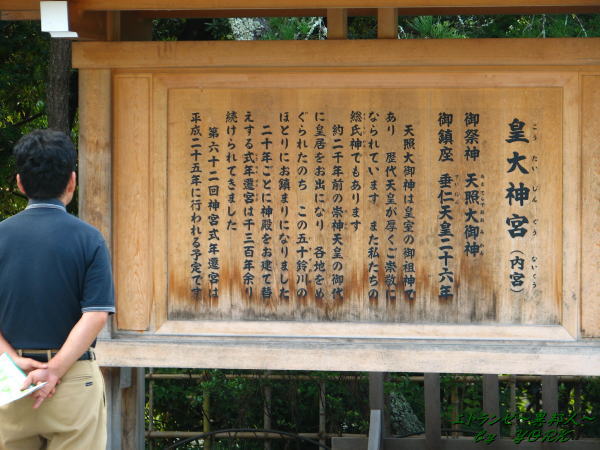 皇大神宮（内宮）
こうたいじんぐう ないくう
御祭神 天照大御神
あまてらすおおみかみ
御鎮座 垂仁天皇二十六年
すいにん
天照大御神は皇室の御祖神で
あり 歴代天皇が厚くご崇敬に
なられています また私たちの
総氏神でもあります
約二千年前の崇神天皇の御代
に皇居をお出になり 各地をめ
ぐられたのち この五十鈴川の
ほとりにお鎮まりになりました
二十年ごとに神殿をお建て替
えする式年遷宮は千三百年余り
続けられてきました
第六十二回神宮式年遷宮は
平成二十五年に行われる予定です
by YORK